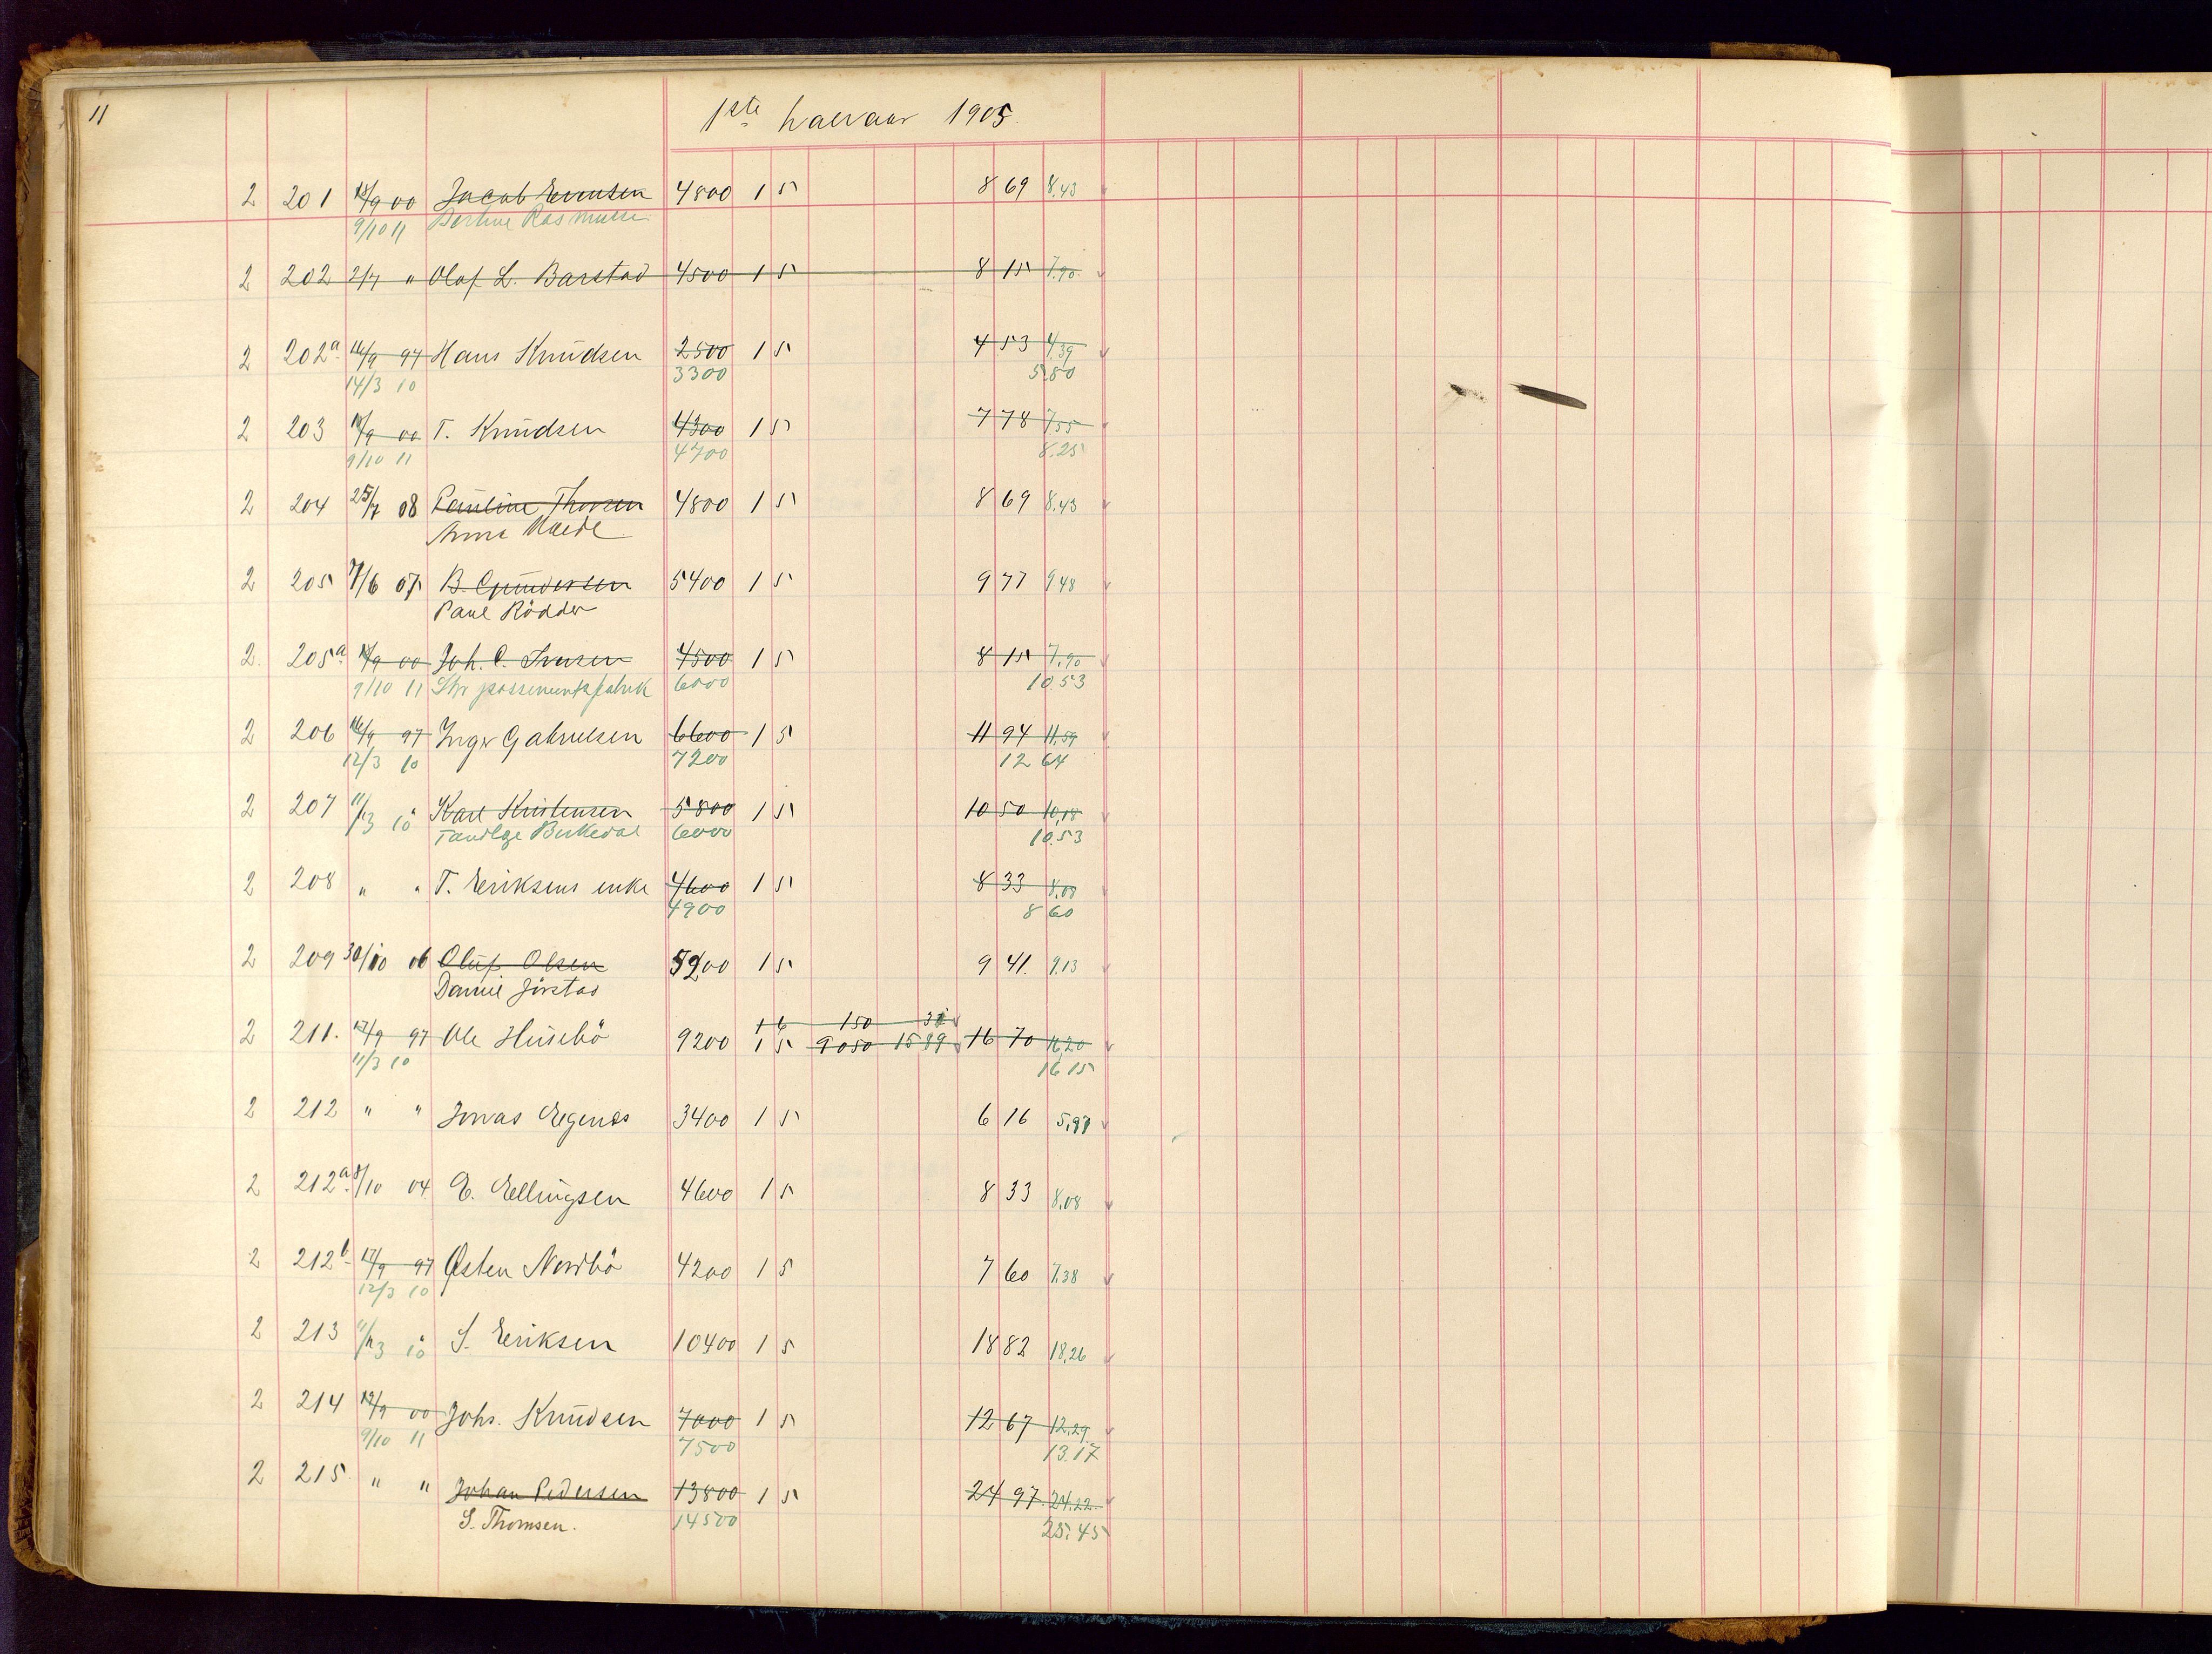 11
1ste halvaar 1905.
2 201 18/9 00 Jacob Evensen 4800 1 5 8 69 8,43
9/10 11 Bertine Rasmussen
2 202 2/7 " Olaf L. Barstad 4500 1 5 8 15 7,90
2 202a 16/9 97 Hans Knudsen 2500 1 5 4 53 4,39
14/3 10 3300 5,80
2 203 18/9 00 T. Knudsen 4300 1 5 7 78 7,55
9/10 11 4700 8.25
2 204 25/7 08 Pauline Thorsen 4800 1 5 8 69 8,43
Anna
2 205 7/6 07 B. Gundersen 5400 1 5 9 77 9,48
Paul Rödder
2. 205a 18/9 00 Joh. C. Ivarsen 4500 1 5 8 15 7,90
9/10 11 6000 10.53
2 206 16/9 97 Inger Gabrielsen 6600 1 5 11 94 11,59
12/3 10 7200 12 64
2 207 11/3 10 Karl Kristensen 5800 1 5 10 50 10,18
Tandlge Birkedal 6000 10.53
2 208 " " T. Eriksens enke 4600 1 5 8 33 8,08
4900 8 60
2 209 30/10 06 Oluf Olsen 5200 1 5 9 41. 9,13
Daniel Jörstad
1 6 150 31
2 211. 17/9 97 Ole Husebö 9200 1 5 9050 15 89 16 70 16,20
11/3 10 16 15
2 212 " " Jonas Egenes 3400 1 5 6 16 5,97
2 212a 8/10 04 E. Ellingsen 4600 1 5 8 33 8,08
2 212b 17/9 97 Østen Nordbö 4200 1 5 7 60 7,38
12/3 10
2 213 11/3 10 S. Eriksen 10400 1 5 18 82 18,26
2 214 19/9 00 Johs. Knudsen 7000 1 5 12 67 12,29
9/10 11 7500 13.17
2 215 " " Johan Pedersen 13800 1 5 24 97 24,22
S. Thomsen. 14500 25,45